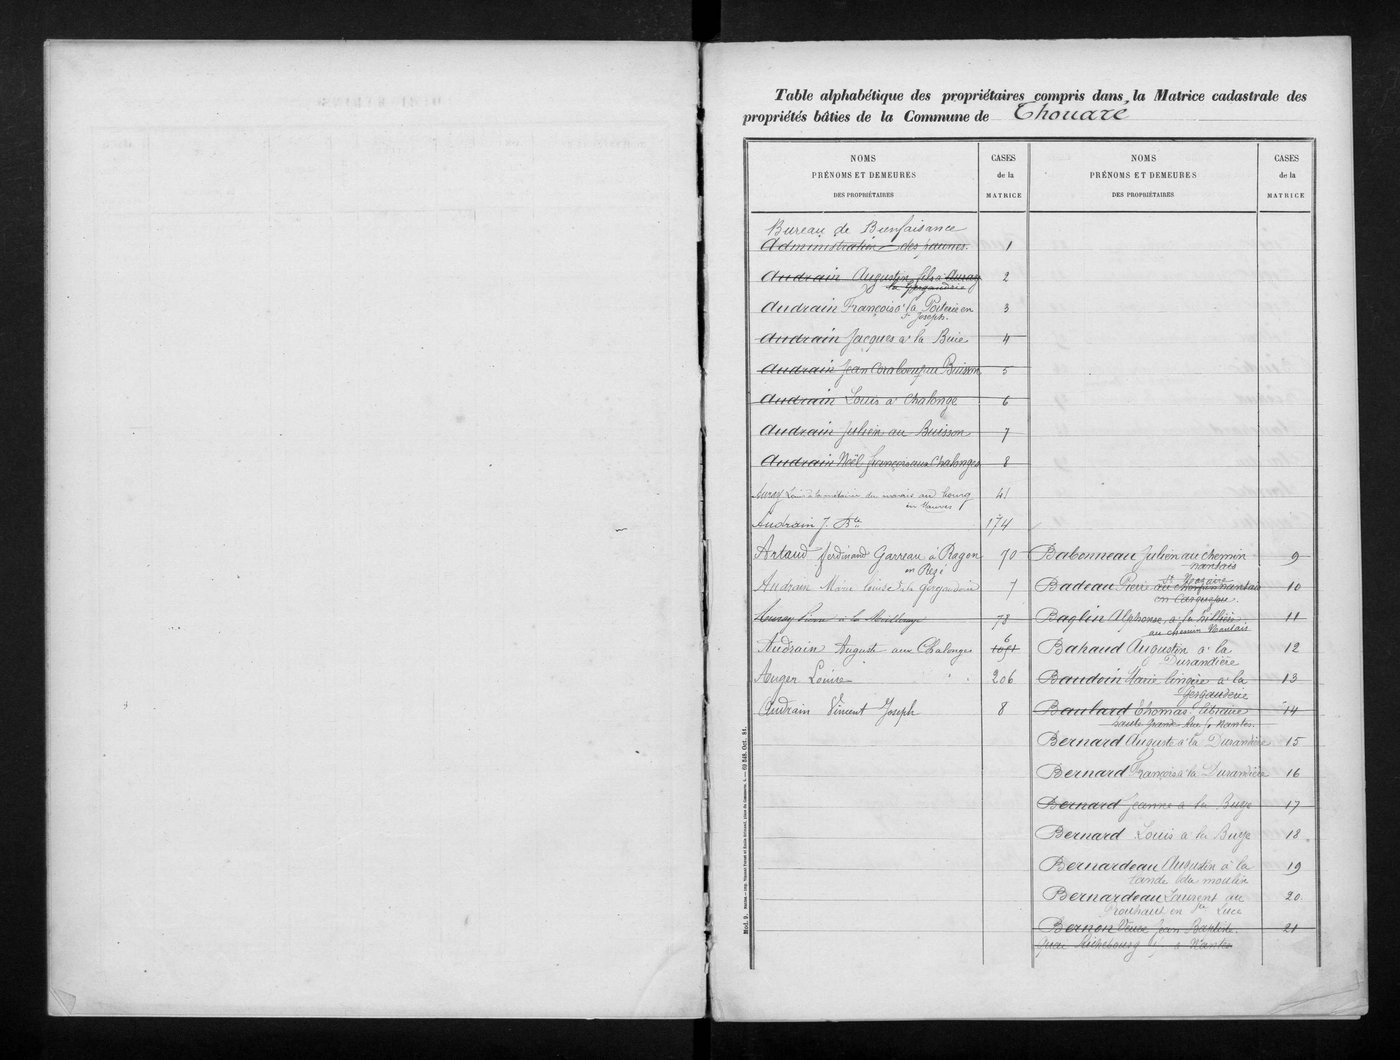 Table alphabétique des propriétaires compris dans la Matrice cadastrale des
propriétés bâties de la Commune de Thouaré
NOMS
PRÉNOMS ET DEMEURES
DES PROPRIÉTAIRES
CASES
de la
MATRICE
Bureau de Bienfaisance
Administration des 1
Audrain Augustin fils à Auray 2
la Gergauderie
Audrain François à la Poiterie en 3
St Joseph.
Audrain Jacques à la Buie 4
Audrain Jean au Buisson 5
Audrain Louis à Chalonge 6
Audrain Julien au Buisson 7
Audrain Noël François aux Chalonges 8
Auray Louis à la métairie du marais au bourg 41
en Mauves
Audrain J. Bte 174
Artaud ferdinand Garreau à Ragon 70
en Rezé
Audrain Marie Louise de la Gergauderie 7
Auray Pierre à la 78
Audrain Auguste aux Chalonges 6
Auger Louise 206
Audrain Vincent Joseph 8
NOMS
PRÉNOMS ET DEMEURES
DES PROPRIÉTAIRES
CASES
de la
MATRICE
Babonneau Julien au chemin 9
nantais
St Nazaire
Badeau Pierre au chemin nantais 10
en Carquefou
Baglin Alphonse, à la Hillière 11
au chemin Nantais
Bahaud Augustin à la 12
Durandière
Baudoin Marie à la 13
Gergauderie
Baulard Thomas libraire 14
haute Grande Rue à Nantes.
Bernard Auguste à la Durandière 15
Bernard François à la Durandière 16
Bernard Jeanne à la Buye 17
Bernard Louis à la Buye 18
Bernardeau Augustin à la 19
lande du moulin
Bernardeau Laurent au 20
en Ste Luce
Bernon Veuve Jean Baptiste 21
quai Richebourg à Nantes